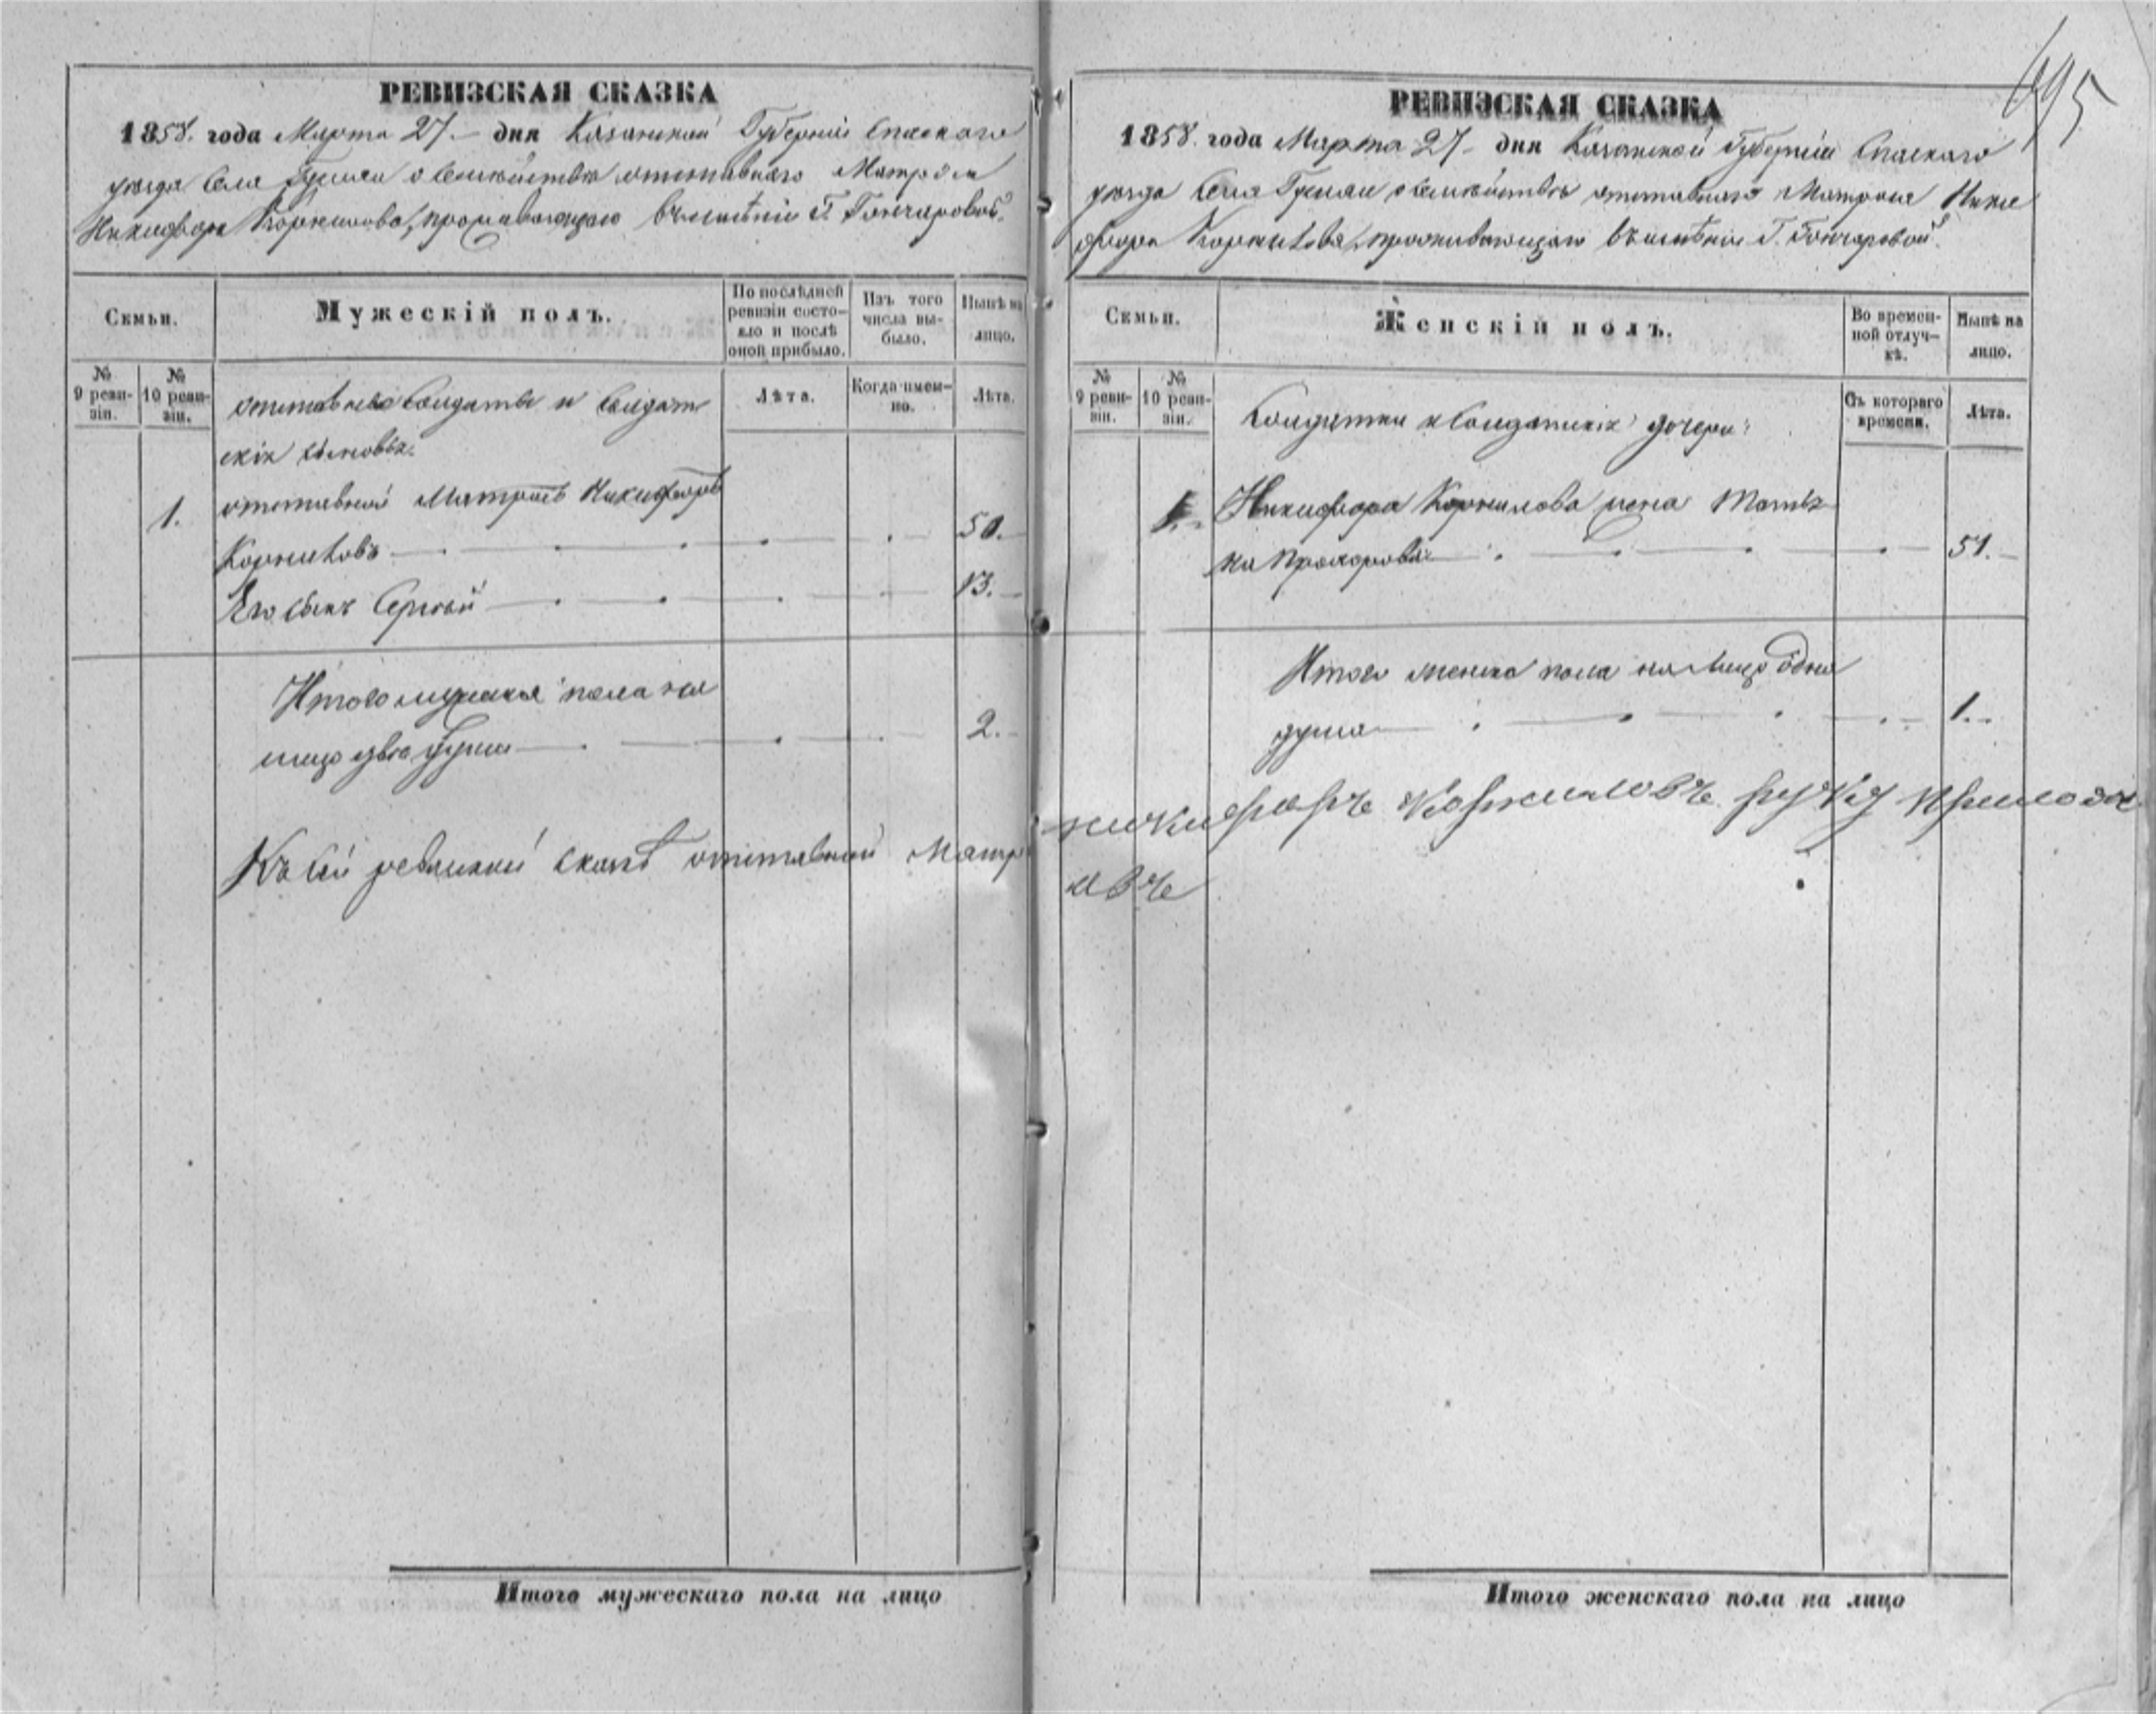 РЕВИЗСКАЯ СКАЗКА
1858. года Марта 27. дня Казанской Губерніи Спаскаго
уезда Села о семействе отставнаго Матроса
Никифора Корнилова, проживающаго въ имѣніи Г. Гончаровой.
Семьи.
Мужескій полъ.
По послѣдней ревизіи состояло и послѣ оной прибыло.
Изъ того числа выбыло.
Нынѣ на лицо.
№ 9 ревизіи.
№ 10 ревизіи.
Лѣта.
Когда именно.
Лѣта.
отставные Солдаты и Солдат
скіх сыновья.
1.
отставной Матросъ Никифоръ
Корниловъ 50.
Его сынъ Сергѣй 13.
Итого мужеска пола на
лицо две души 2.
Къ сей ревизской сказкѣ отставной Матр
РЕВИЗСКАЯ СКАЗКА
695
1858. года Марта 27 дня Казанской Губерніи Спаскаго
уезда Села о семействе отставнаго Матроса Ники
фора Корнилова, проживающаго въ имѣніи Г. Гончаровой.
Семьи.
Женскій полъ.
Во временной отлучкѣ.
Нынѣ на лицо.
№ 9 ревизіи.
№ 10 ревизіи.
Съ котораго времени.
Лѣта.
Солдатки и Солдатскіх дочери:
1.
Никифора Корнилова жена Матре
на Прохорова 51.
Итого женска пола на лицо одна
душа 1.
никифоръ Корниловъ руку приложи
Итого мужескаго пола на лицо
Итого женскаго пола на лицо